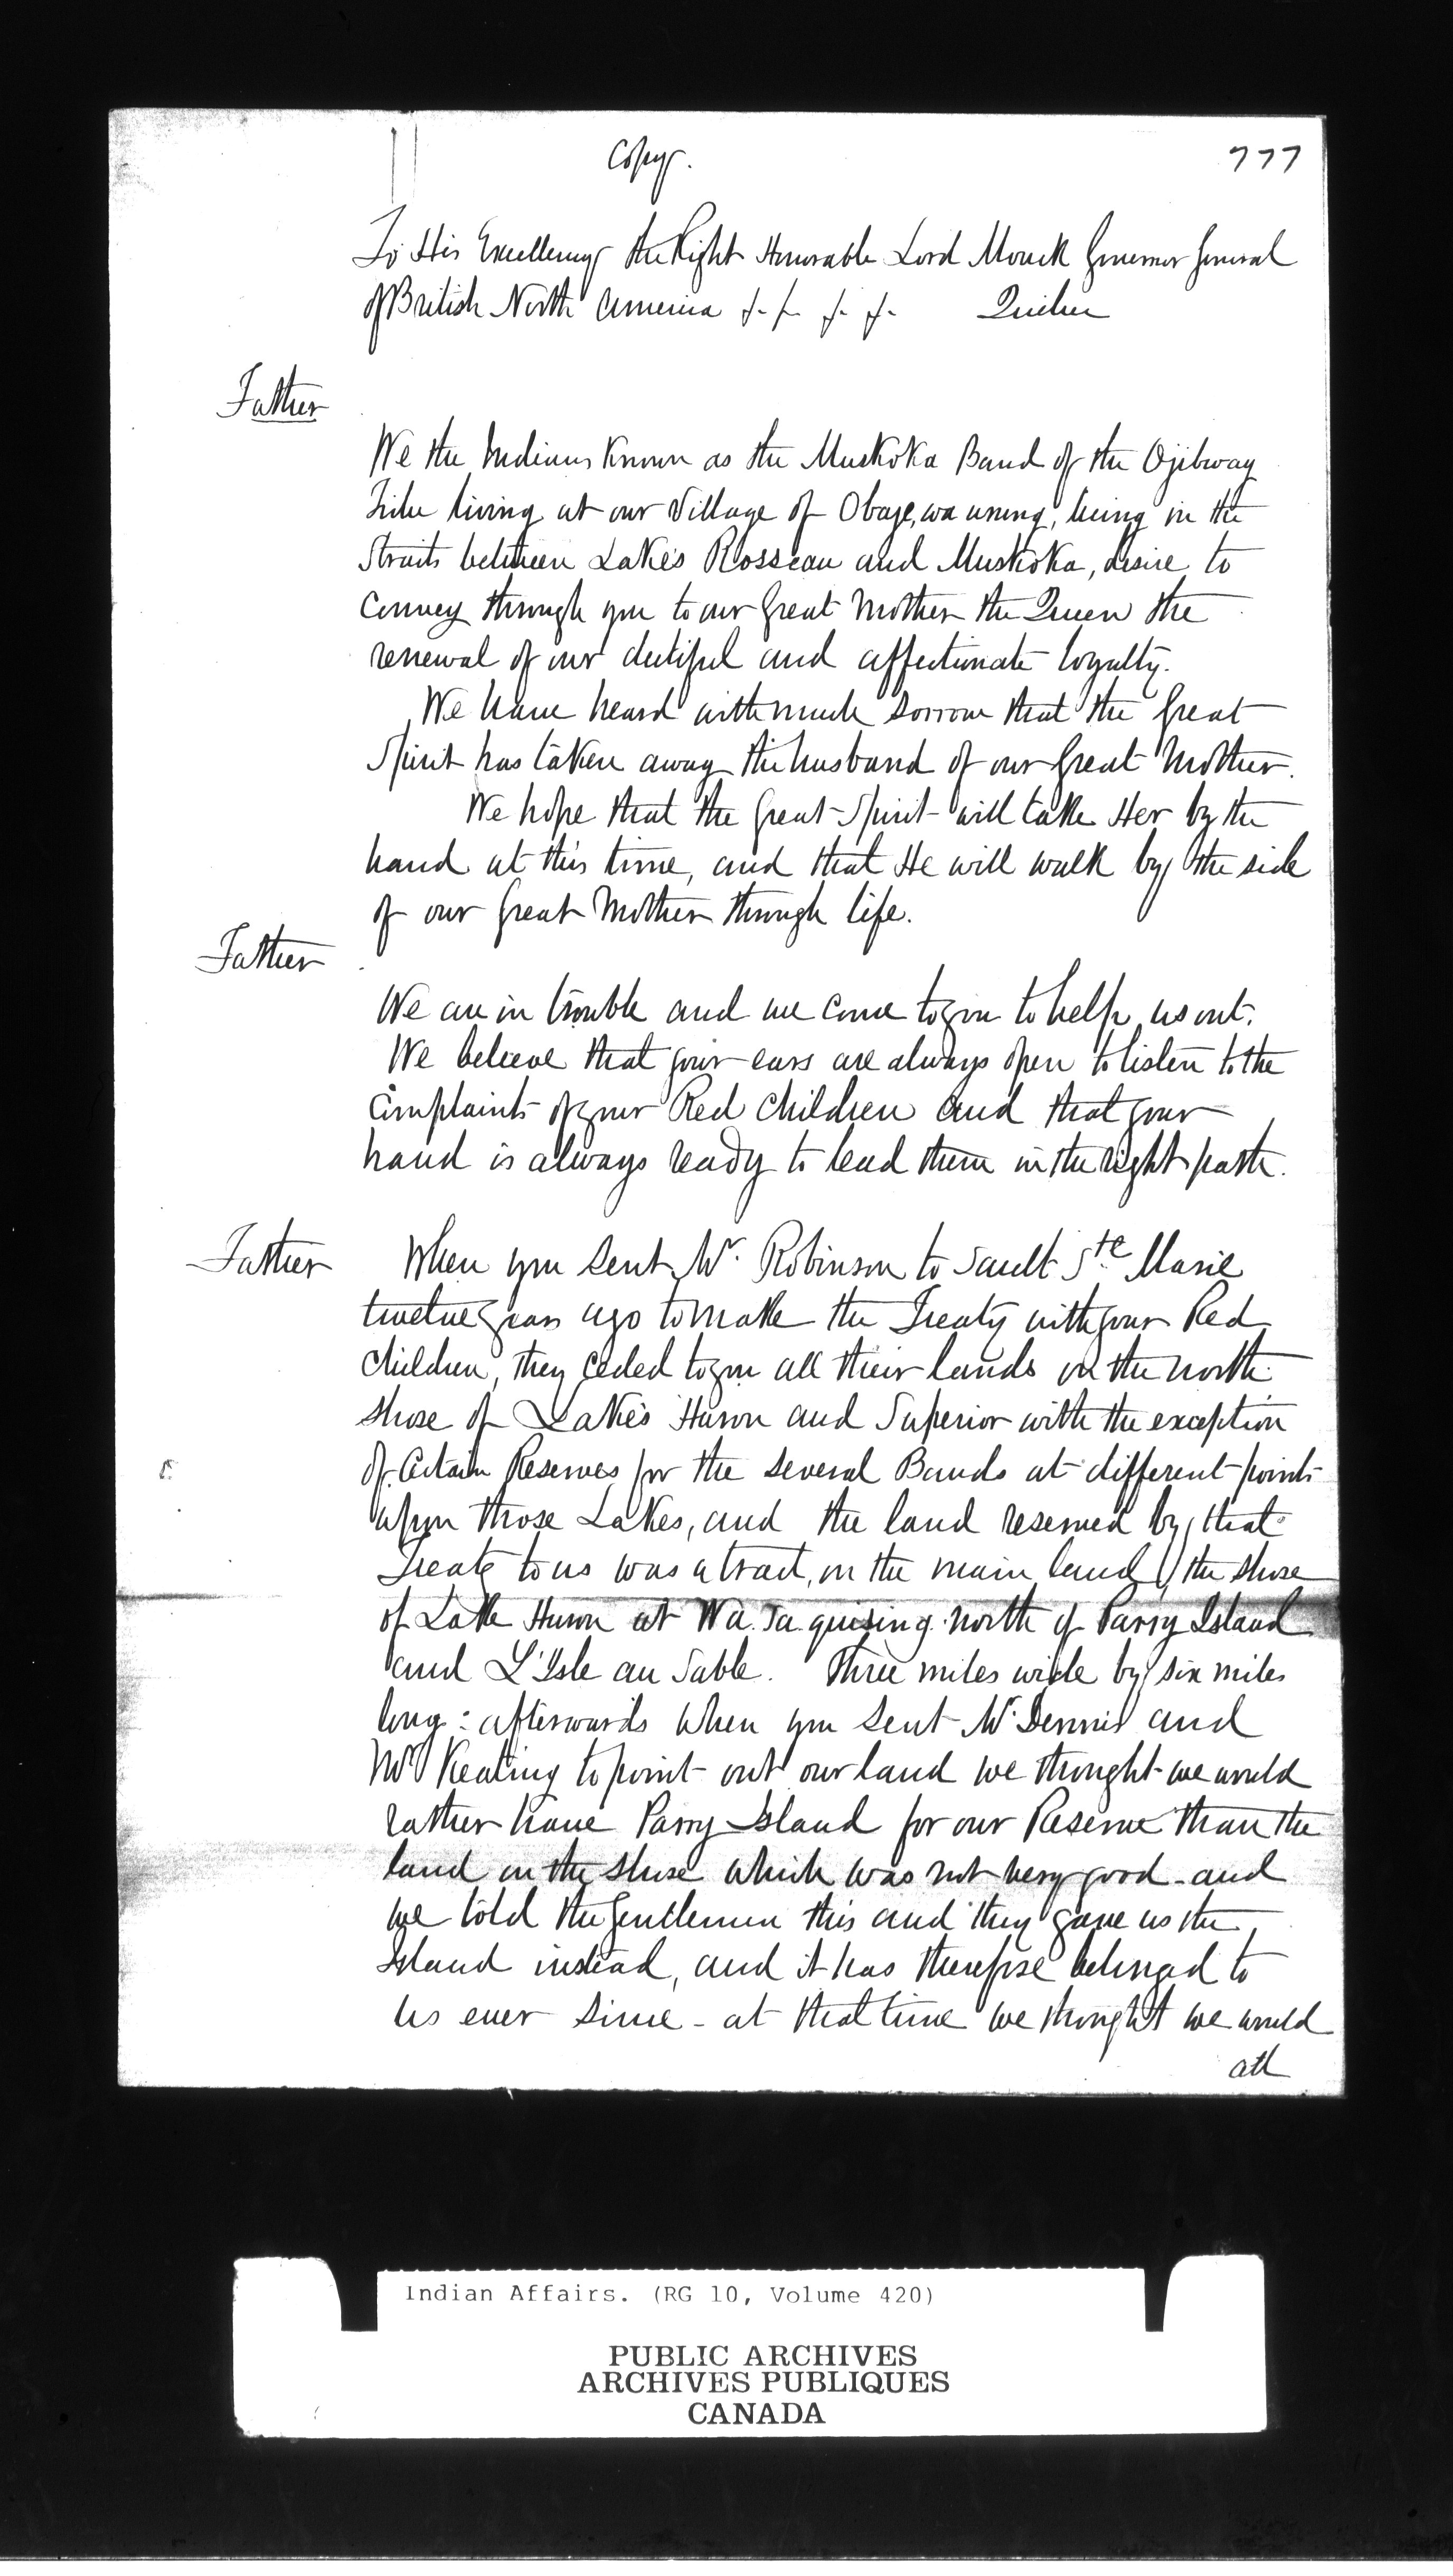 Copy.
777
To His Excellency the Right Honorable Lord Monck Governor General
of British North America &. &. &. &. Quebec
Father
We the Indians Known as the Muskoka Band of the Ojibway
Tribe living at our Village of Obaje,wa unung, being in the
Straits between Lakes Rosseau and Muskoka, desire to
Convey through you to our Great Mother the Queen the
renewal of our dutiful and affectionate loyalty.
We have heard with much sorrow that the Great
Spirit has taken away the husband of our Great Mother.
We hope that the Great Spirit will take Her by the
hand at this time, and that He will walk by the side
of our Great Mother through life.
Father
We are in trouble and we come to you to help us out.
We believe that your ears are always open to listen to the
Complaints of your Red Children and that your
hand is always ready to lead them in the right path.
Father When you sent Mr. Robinson to Sault Ste Marie
twelve years ago to make the Treaty with your Red
Children, they ceded to you all their lands on the north
shore of Lakes Huron and Superior with the exception
of Certain Reserves for the several Bands at different points
upon those Lakes, and the land reserved by that
Treaty to us was a tract, on the main land the shore
of Lake Huron at Wa.sa.quising north of Parry Island
and L'Isle au Sable. Three miles wide by six miles
long: afterwards when you sent Mr. Dennis and
Mr Keating to point out our land we thought we would
rather have Parry Island for our Reserve than the
land on the shore which was not very good - and
we told the Gentlemen this and they gave us the
Island instead, and it has therefore belonged to
us ever since - at that time we thought we would
all
Indian Affairs. (RG 10, Volume 420)
PUBLIC ARCHIVES
ARCHIVES PUBLIQUES
CANADA